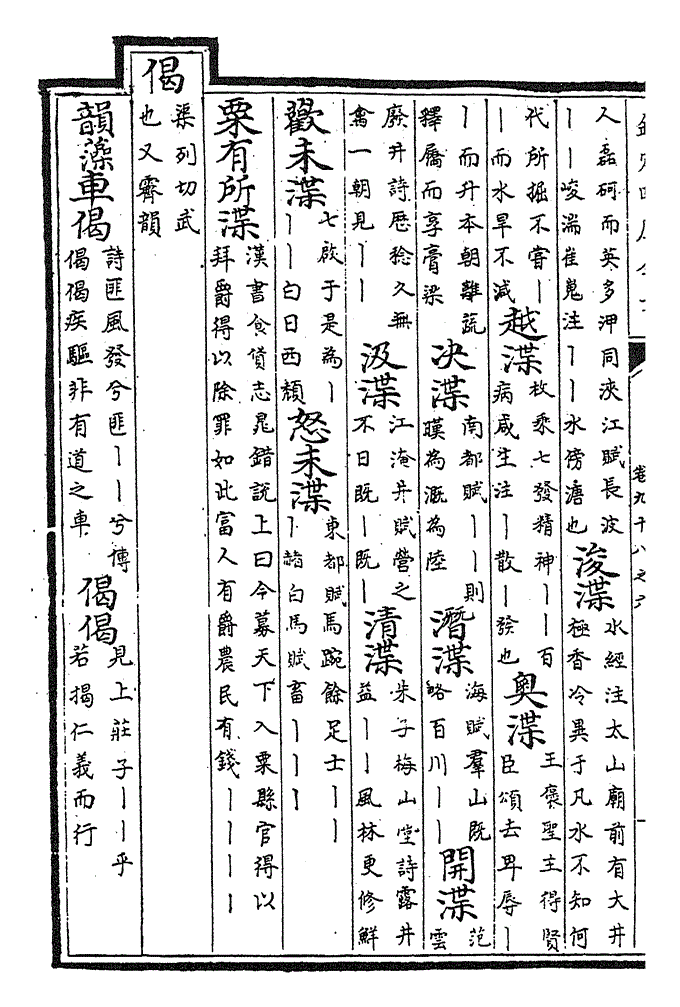 卷九十八之六
人磊砢而英多渒同浹江賦長波
丨丨峻湍崔嵬注丨丨水傍溏也
浚渫
水經注太山廟前有大井
極香冷異于凡水不知何
代所掘不嘗丨
丨而水旱不減
越渫
枚乘七發精神丨丨百
病咸生注丨散丨發也
奧渫
王褒聖主得賢
臣頌去卑辱丨
丨而升本朝離蔬
釋屩而享膏粱
决渫
南都賦丨丨則
暵為溉為陸
潛渫
海賦羣山既
略百川丨丨
開渫
范
雲
廢井詩歷稔久無
禽一朝見丨丨
汲渫
江淹井賦營之
不日既丨既丨
清渫
朱子梅山堂詩露井
益丨丨風林更修鮮
歡未渫
七啟于是為丨
丨丨白日西頽
怒未渫
東都賦馬踠餘足士丨丨
丨赭白馬賦畜丨丨丨
粟有所渫
漢書食貨志晁錯說上曰今募天下入粟縣官得以
拜爵得以除罪如此富人有爵農民有錢丨丨丨丨
偈
渠列切武
也又霽韻
韻藻車偈
詩匪風發兮匪丨丨兮傳
偈偈疾驅非有道之車
偈偈
見上莊子丨丨乎
若揭仁義而行